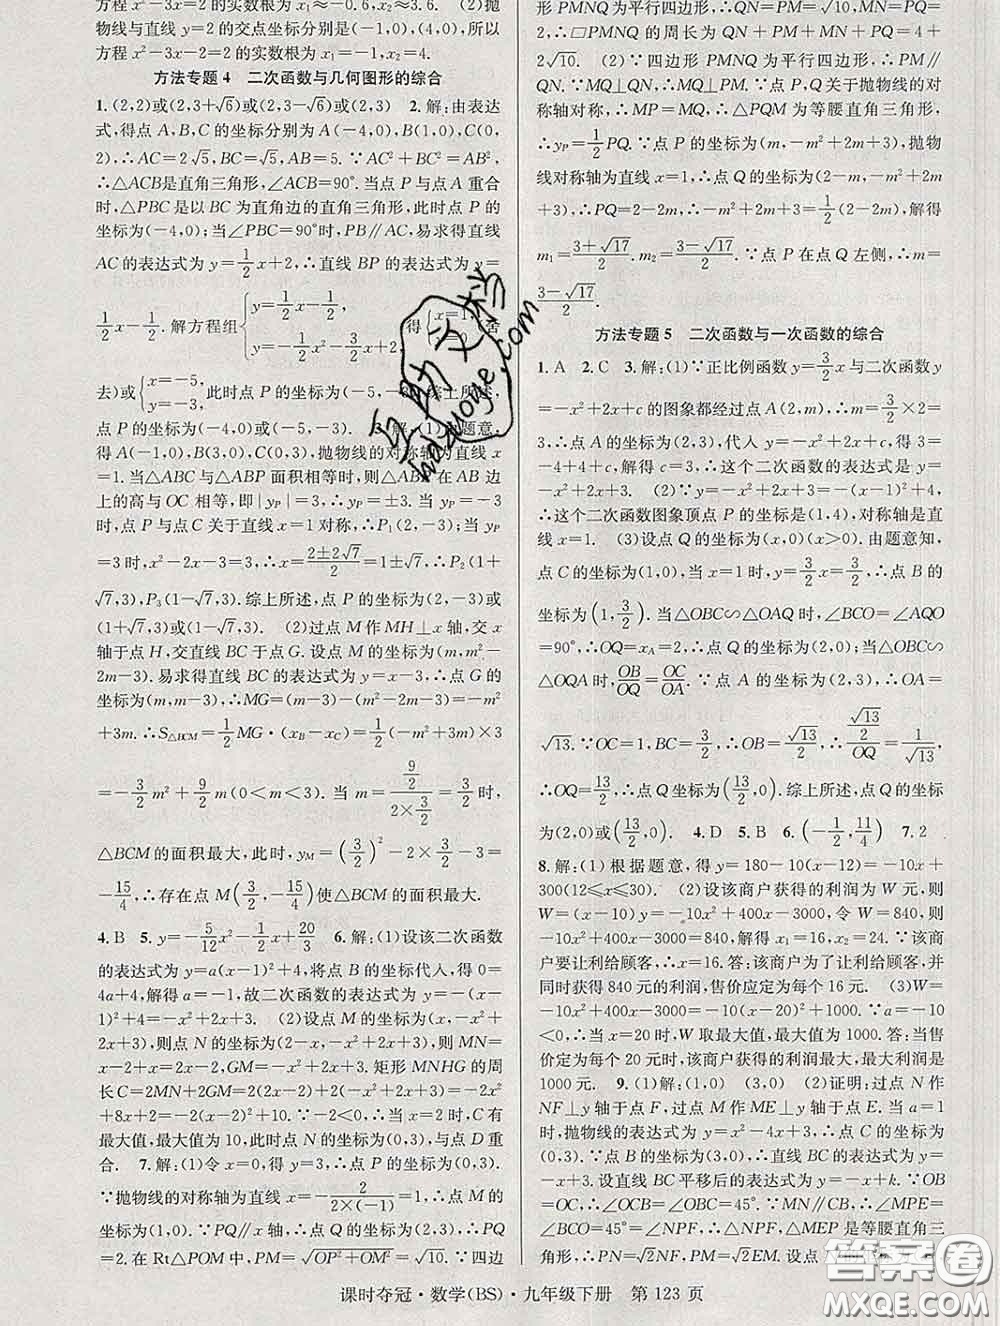 方程 x²-3x=2 的实数根为 x₁≈-0.6, x₂≈3.6. (2)抛
物线与直线的交点坐标分别是(-1,0),(4,0),所以
方程 x²-3x-2=2 的实数根为 x₁=-1,x₂=4.
方法专题 4 二次函数与几何图形的综合
1.(2,2)或(2,3+√6)或(2,3-√6)或(2,3) 2.解:由表达
式,得点 A,B,C 的坐标分别为 A(-4,0),B(1,0),C(0,
2),∴AC=2√5,BC=√5,AB=5.∵AC²+BC²=AB²,
∴△ACB是直角三角形,∠ACB=90°.当点 P 与点 A 重合
时,△PBC 是以 BC 为直角边的直角三角形,此时点 P 的
坐标为(-4,0);当∠PBC=90°时,PB∥AC,易求得直线
AC 的表达式为 y=1/2x+2,∴直线 BP 的表达式为 y=
1/2x-1/2.解方程组{y=1/2x-1/2,
得{x=1,
去)或{x=-5, y=-3, 此时点 P 的坐标为(-5,
点 P 的坐标为(-4,0)或(-5,
得 A(-1,0),B(3,0),抛物线的对称轴为直线 x=
1.当△ABC 与 面积相等时,则△AB 在 AB 边
上的高与 OC 相等,即|yP|=3,∴yP=±3.当 yP=-3
时,点 P 与点 C 关于直线 x=1 对称,∴P₁(2,-3);当 yP
=3时,x²-2x-3=3,∴x=(2±2√7)/2=1±√7,∴P₂(1+
√7,3),P₃(1-√7,3).综上所述,点 P 的坐标为(2,-3)或
(1+√7,3)或(1-√7,3). (2)过点 M 作 MH⊥x 轴,交 x
轴于点 H,交直线 BC 于点 G.设点 M 的坐标为(m,m²-
2m-3).易求得直线 BC 的表达式为 y=x-3,∴点 G 的
坐标为(m,m-3),∴MG=(m-3)-(m²-2m-3)=-m²
+3m.∴S△BCM=1/2MG·(xB-xC)=1/2(-m²+3m)×3
=-3/2m²+9/2m(0<m<3).当 m=(9/2)/(2×3/2)=3/2时,
△BCM 的面积最大,此时,yM=(3/2)²-2×3/2-3=
-15/4,∴存在点 M(3/2,-15/4)使△BCM 的面积最大.
4.B 5.y=-5/12x²-1/2x+20/3 6.解:(1)设该二次函数
的表达式为 y=a(x-1)²+4,将点 B 的坐标代入,得 0=
4a+4,解得 a=-1,故二次函数的表达式为 y=-(x-
1)²+4=-x²+2x+3. (2)设点 M 的坐标为(x,-x²+
2x+3),则点 N 的坐标为(2-x,-x²+2x+3),则 MN=
x-2+x=2x-2,GM=-x²+2x+3.矩形 MNHG 的周
长 C=2MN+2GM=2(2x-2)+2(-x²+2x+3)=-2x²
+8x+2=-2(x-2)²+10.∵-2<0,∴当 x=2 时,C 有
最大值,最大值为 10,此时点 N 的坐标为(0,3),与点 D 重
合. 7.解:(1)令 x=0,得 y=3,∴点 P 的坐标为(0,3).
∵抛物线的对称轴为直线 x=-2/(2×(-1))=1,∴点 M 的
坐标为(1,0).∵PQ∥x 轴,∴点 Q 的坐标为(2,3),∴PQ
=2.在 Rt△POM 中,PM=√(OP²+OM²)=√10.∵四边
形 PMNQ 为平行四边形,∴QN=PM=√10,MN=PQ=
2,∴□PMNQ 的周长为 QN+PM+MN+PQ=4+
2√10. (2)∵四边形 PMNQ 为平行四边形,∴PM∥
QN.∵MQ⊥QN,∴MQ⊥PM.∵点 P,Q 关于抛物线的对
称轴对称,∴MP=MQ,∴△PQM 为等腰直角三角形,
∴yP=1/2PQ.∵点 P 的坐标为(m,-m²+2m+3),抛物
线对称轴为直线 x=1,∴点 Q 的坐标为(2-m,-m²+2m
+3),∴PQ=2-2m,∴-m²+2m+3=1/2(2-2m),解得
m₁=(3+√17)/2,m₂=(3-√17)/2.∵点 P 在点 Q 左侧,∴m=
(3-√17)/2.
方法专题 5 二次函数与一次函数的综合
1.A 2.C 3.解:(1)∵正比例函数 y=3/2x 与二次函数 y
=-x²+2x+c 的图象都经过点 A(2,m),∴m=3/2×2=
3,∴点 A 的坐标为(2,3),代入 y=-x²+2x+c,得 3=
-4+4+c,解得 c=3,∴这个二次函数的表达式是 y=
-x²+2x+3. (2)∵y=-x²+2x+3=-(x-1)²+4,
∴这个二次函数图象顶点 P 的坐标是(1,4),对称轴是直
线 x=1. (3)设点 Q 的坐标为(x,0)(x>0).由题意知,
点 C 的坐标为(1,0),当 x=1时,y=3/2x=3/2,∴点 B 的
坐标为(1,3/2).当△OBC∽△OAQ 时,∠BCO=∠AQO
=90°,∴OQ=xA=2,∴点 Q 的坐标为(2,0);当△OBC∽
△OQA 时,OB/OQ=OC/OA.∵点 A 的坐标为(2,3),∴OA=
√13.∵OC=1,BC=3/2,∴OB=√13/2,∴(√13/2)/OQ=1/√13,
∴OQ=13/2,∴点 Q 的坐标为(13/2,0).综上所述,点 Q 的坐
标为(2,0)或(13/2,0). 4.D 5.B 6.(-1/2,11/4) 7.2
8.解:(1)根据题意,得 y=180-10(x-12)=-10x+
300(12≤x≤30). (2)设该商户获得的利润为 W 元,则
W=(x-10)y=-10x²+400x-3000,令 W=840,则
-10x²+400x-3000=840,解得 x₁=16,x₂=24.∵该商
户要让利给顾客,∴x=16.答:该商户为了让利给顾客,
并同时获得 840 元的利润,售价应定为每个 16 元. (3)W=
-10x²+400x-3000=-10(x-20)²+1000.∵a=-10
<0,∴当 x=20时,W 取最大值,最大值为 1000.答:当售
价定为每个 20 元时,该商户获得的利润最大,最大利润是
1000元. 9.(1)解:(1,0) (3,0) (2)证明:过点 N 作
NF⊥y 轴于点 F,过点 M 作 ME⊥y 轴于点 E.当 a=1
时,抛物线的表达式为 y=x²-4x+3,∴点 C 的坐标为
(0,3).∵点 B 的坐标为(3,0),∴直线 BC 的表达式为 y=
-x+3.设直线 BC 平移后的表达式为 y=-x+k.∵OB=
OC,∴∠OCB=∠OBC=45°.∵MN∥CB,∴∠MPE=
∠BCO=45°=∠NPF,∴△NPF,△MEP 是等腰直角三角
形,∴PN=√2NF,PM=√2EM.设点
课时夺冠·数学(BS)·九年级下册 第 123 页
互助文档
hdzuoye.com
答案圈
MXQE.COM